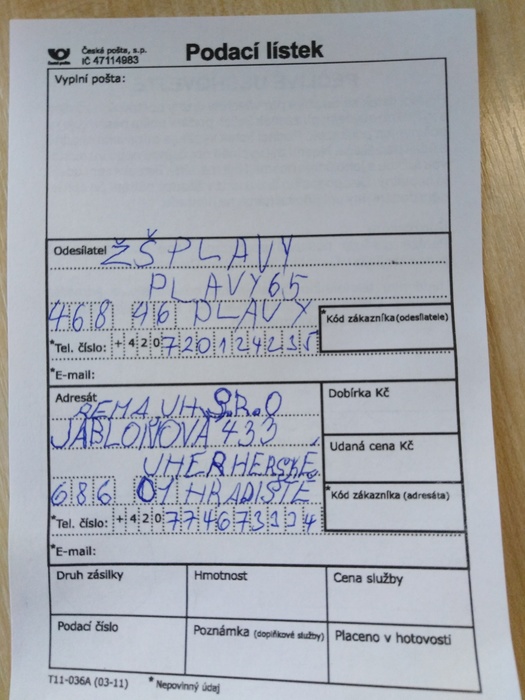 Česká pošta, s.p.
IČ 47114983
Podací lístek
Vyplní pošta:
Odesílatel ŽŠ PLAVY
PLAVY 65
468 46 PLAVY
*Kód zákazníka (odesílatele)
*Tel. číslo: +420720124235
*E-mail:
Adresát REMA UH, S.R.O
JABLOŇOVÁ 433
UHERHERSKE
686 01 HRADIŠTE
*Tel. číslo: +420774673124
*E-mail:
Dobírka Kč
Udaná cena Kč
*Kód zákazníka (adresáta)
Druh zásilky
Hmotnost
Cena služby
Podací číslo
Poznámka (doplňkové služby)
Placeno v hotovosti
T11-036A (03-11)
* Nepovinný údaj